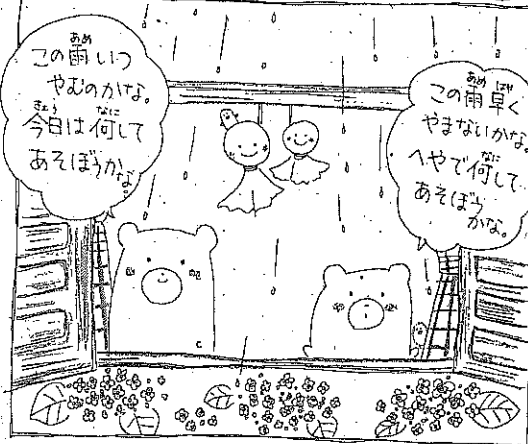 この雨いつ
やむのかな。
今日は何して
あそぼうかな。
この雨早く
やまないかな。
へやで何して
あそぼう
かな。